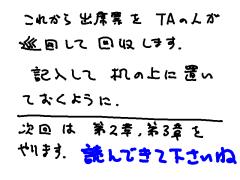 これから出席票を TAの人が
巡回して回収します.
記入して机の上に置い
ておくように.
次回は 第2章,第3章を
やります. 読んできて下さいね